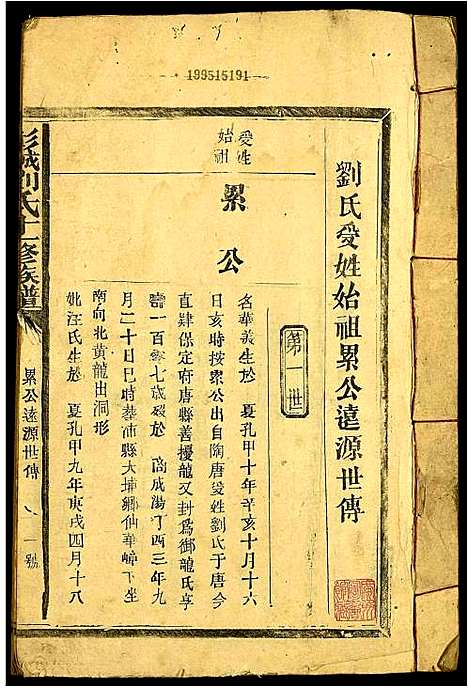 199515191
劉氏受姓始祖累公遠源世傳
第一世
受姓
始祖
累公
名華義生於 夏孔甲十年辛亥十月十六
日亥時按累公出自陶唐受姓劉氏于唐今
直肄保定府唐縣善擾龍又封為御龍氏享
壽一百零七歲歿於 成湯丁酉三年九
月二十日巳時葬沛縣大埠鄉仙華嶂下坐
南向北黃龍出洞形
妣汪氏生於 夏孔甲九年庚戌四月十八
彭城刘氏十二修族譜
累公遠源世傳
一號